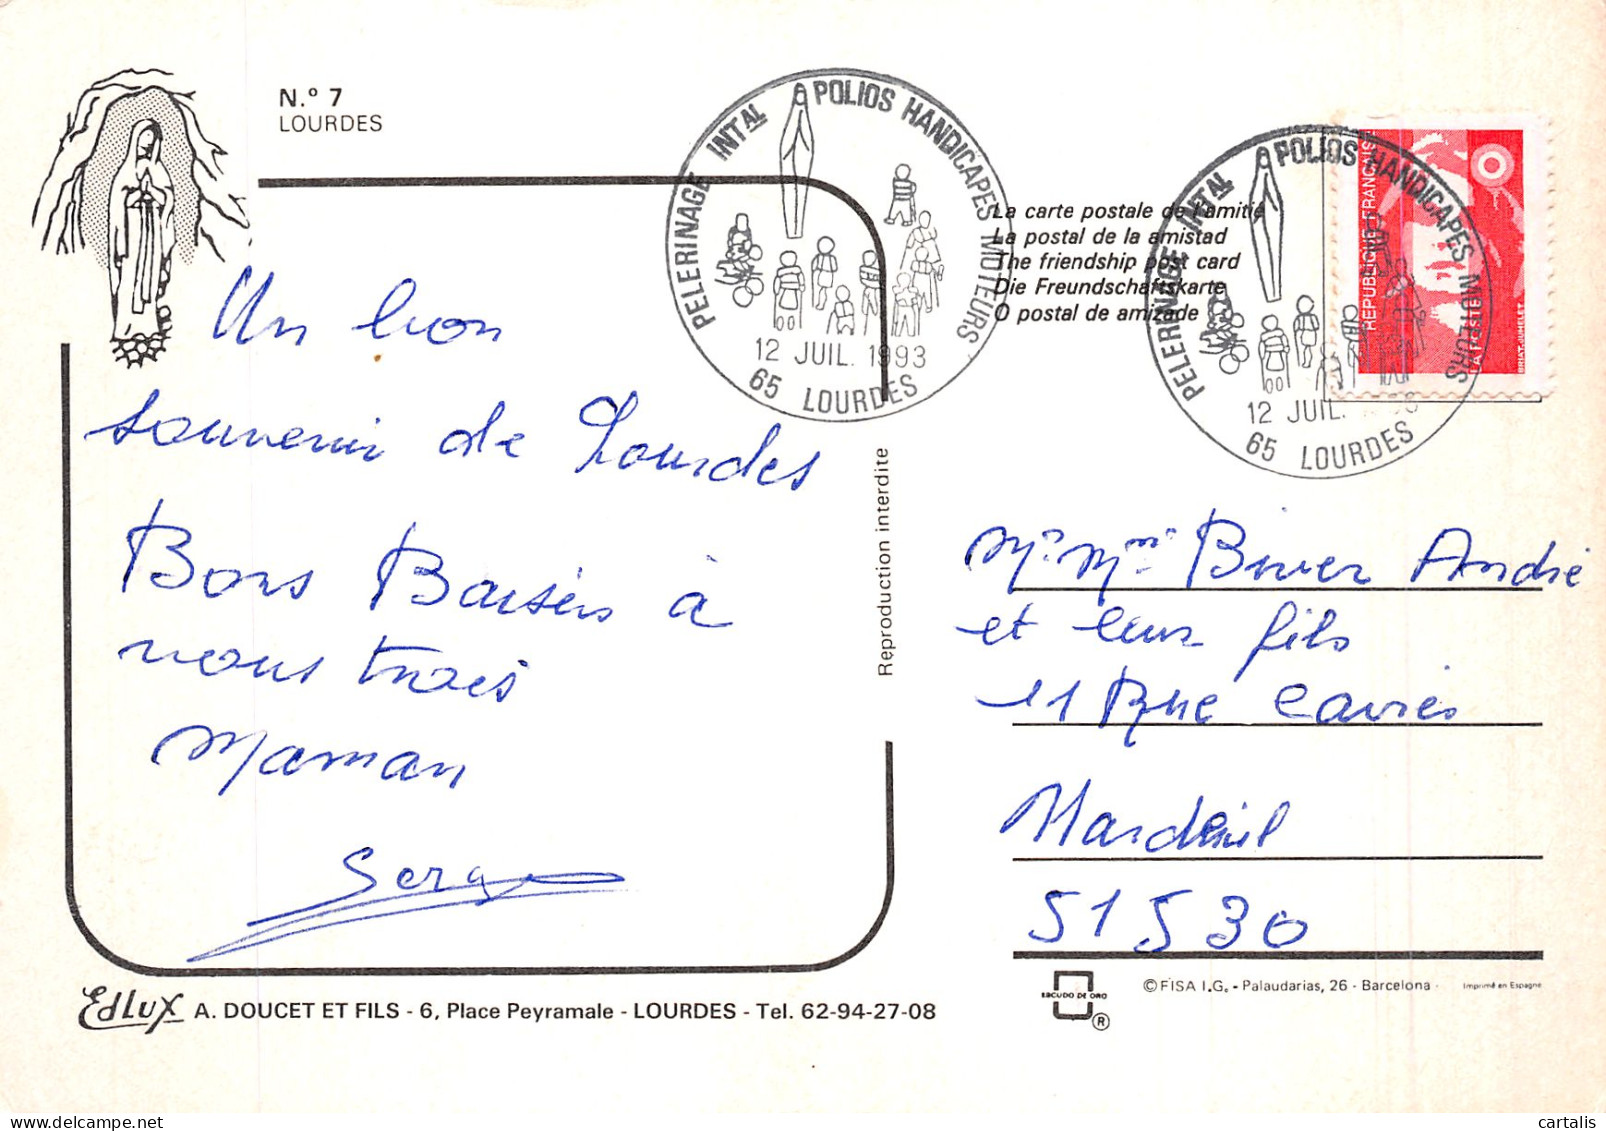 N.º 7
LOURDES
PELERINAGE INTAL POLIOS HANDICAPES MOTEURS
12 JUIL. 1993
65 LOURDES
PELERINAGE INTAL POLIOS HANDICAPES MOTEURS
12 JUIL.
65 LOURDES
REPUBLIQUE FRANÇAISE
LA POSTE
BRIAT-JUMELET
La carte postale de l'amitié
La postal de la amistad
The friendship post card
Die Freundschaftskarte
O postal de amizade
Un bon
souvenir de Lourdes
Bons Baisers à
vous trois
Maman
Serge
Reproduction interdite
Mr Mme Biver André
et leur fils
11 Rue
Mardeuil
51530
EdLux A. DOUCET ET FILS - 6, Place Peyramale - LOURDES - Tel. 62-94-27-08
ESCUDO DE ORO
®
© FISA I.G. - Palaudarias, 26 - Barcelona - Imprimé en Espagne
cartalis